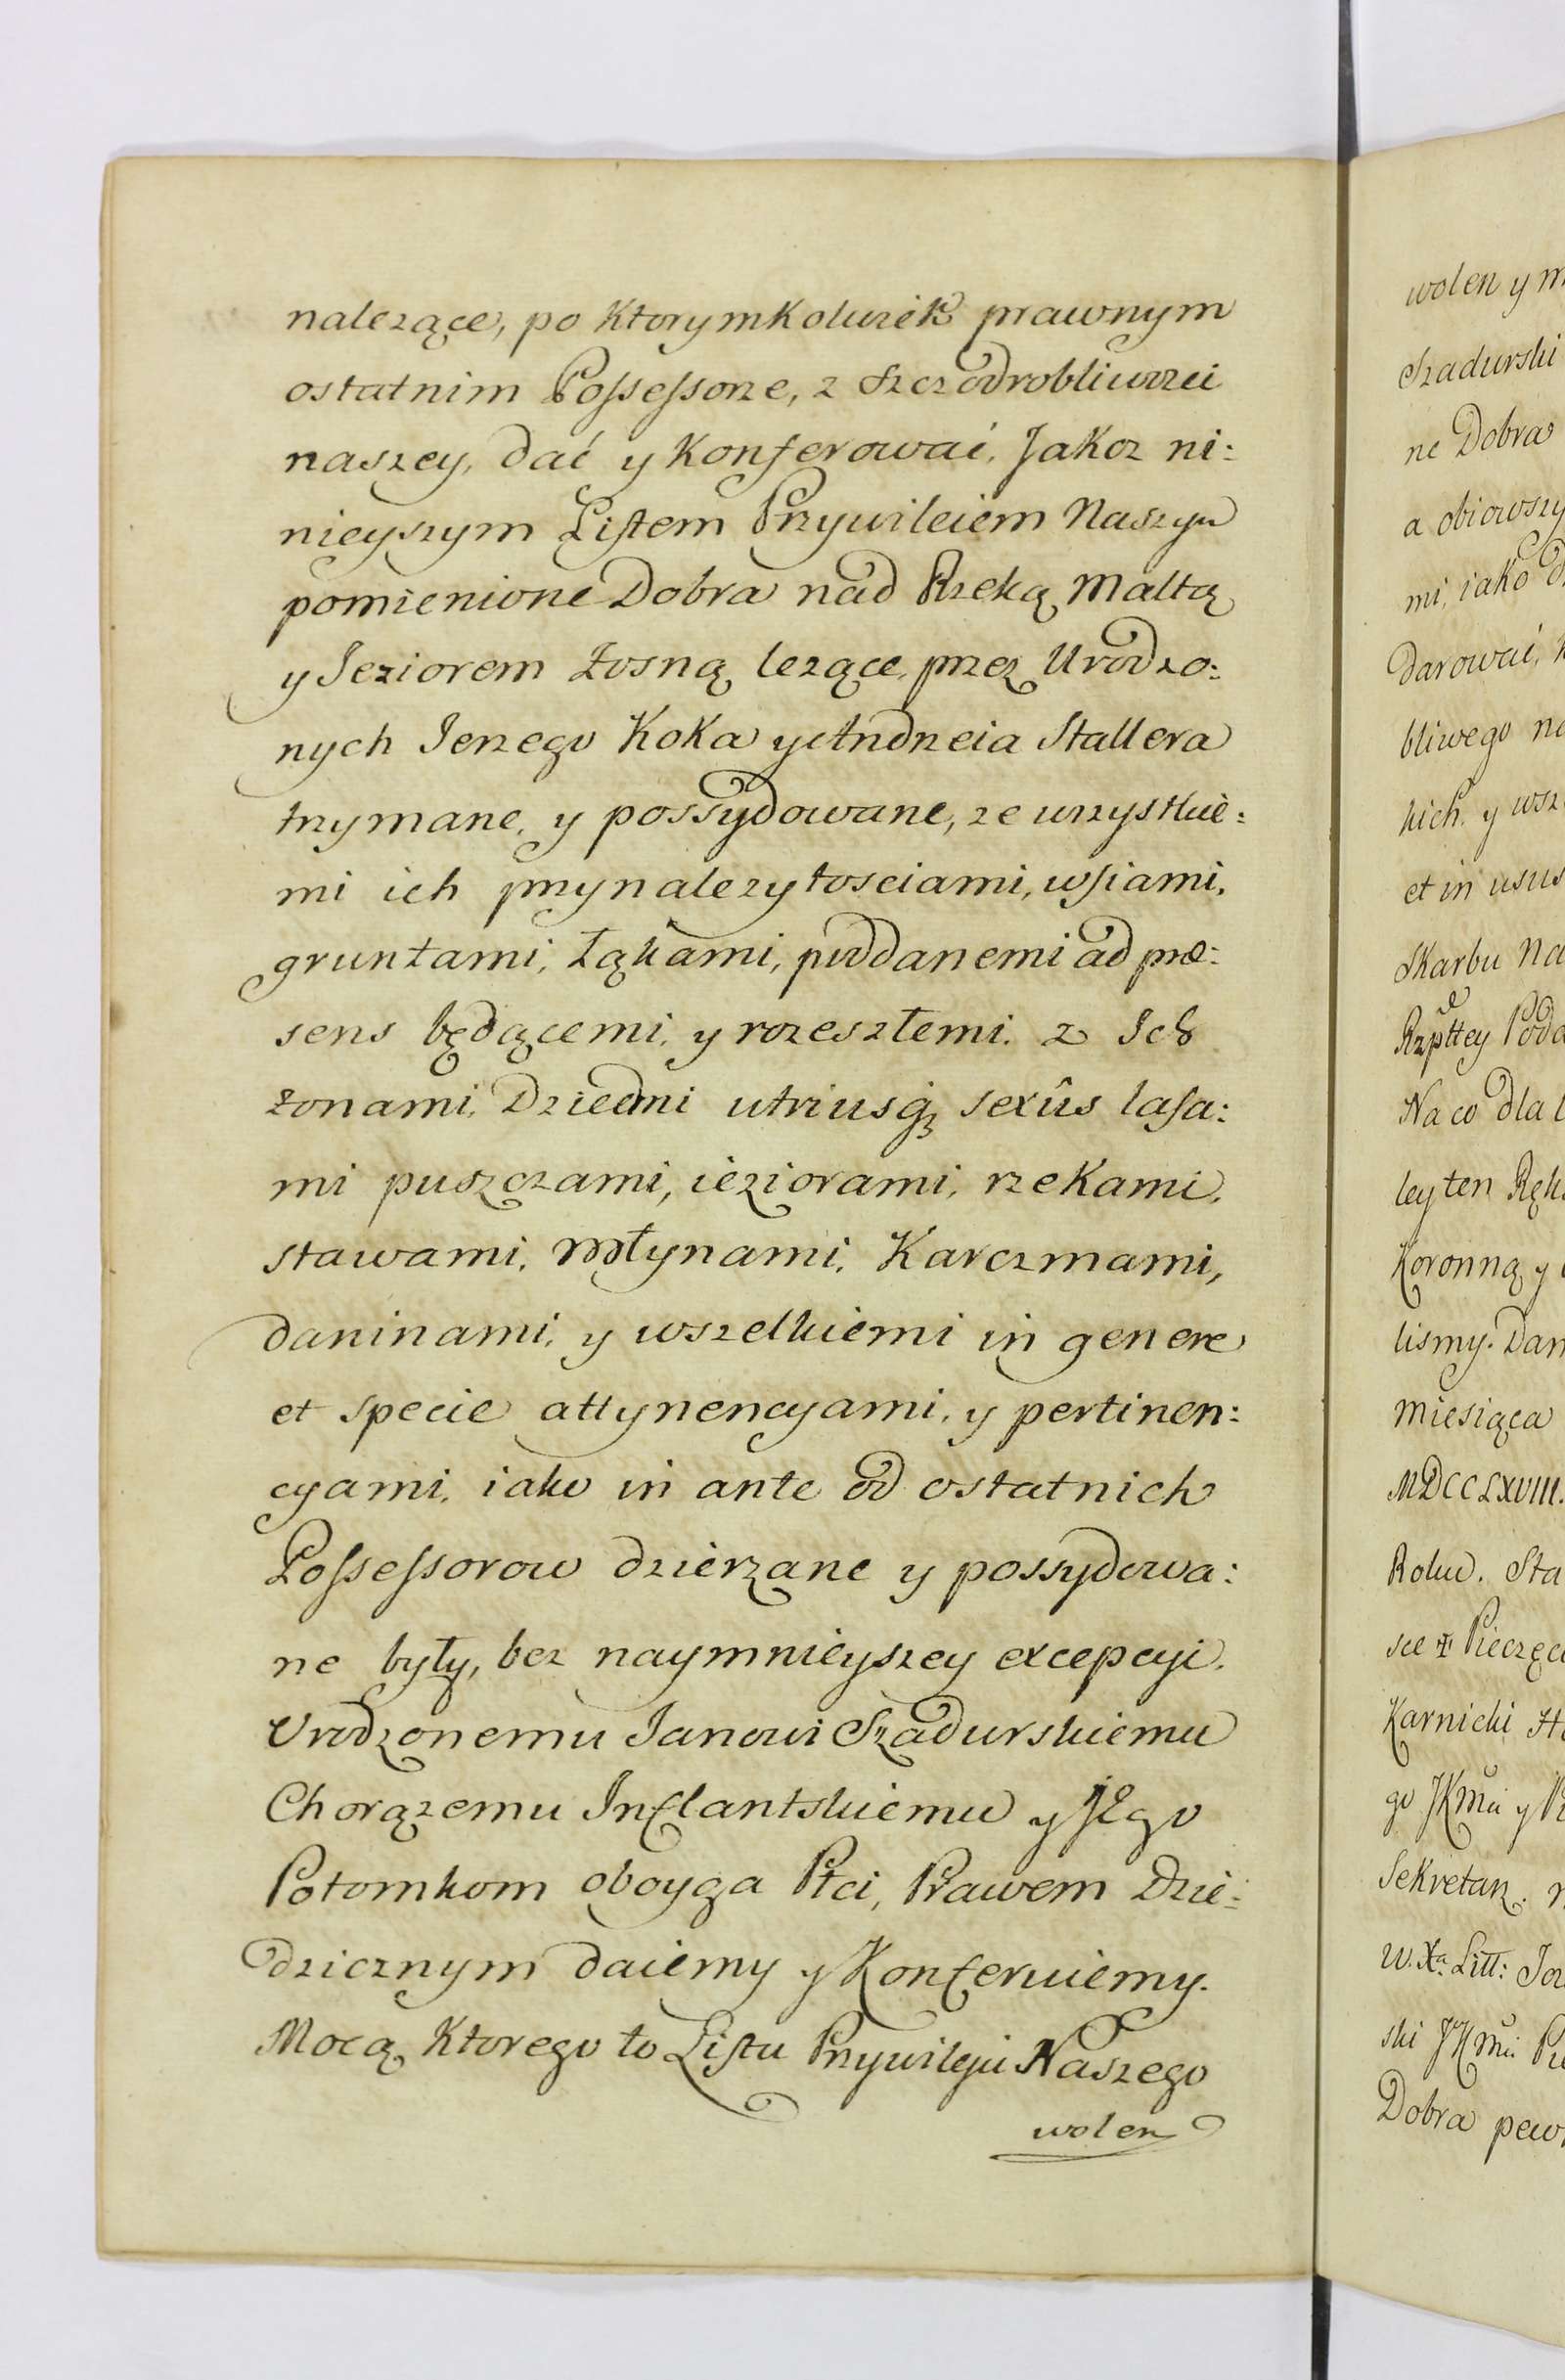 nalezące, po ktorymkolwiek prawnym
ostatnim Possessorze, z szczodrobliwosci
naszey, dać y konferować. Jakoz ni:
nieyszym Listem Przywileiem Naszym
pomienione Dobra nad Rzeką Maltą
y Jeziorem Łosną lezące, przez Urodzo:
nych Jerzego Koka y Andrzeia Stallera
trzymane, y possydowane, ze wszystkie:
mi ich przynalezytosciami, wsiami,
gruntami, łąkami, poddanemi ad præ:
sens będącemi, y rozeszłemi, z Ich
żonami, Dziećmi utriusq; sexûs lasa:
mi puszczami, ieziorami, rzekami,
stawami, Młynami, Karczmami,
daninami, y wszelkiemi in genere
et specie attynencyami, y pertinen:
cyami, iako in ante od ostatnich
Possessorow dzierzane y possydowa:
ne były, bez naymnieyszey excepcyi.
Urodzonemu Janowi Szadurskiemu
Chorązemu Inflantskiemu y Jego
Potomkom oboyga Płci, Prawem Dzie:
dzicznym daiemy y Konferuiemy.
Mocą Ktorego to Listu Przywileju Naszego
wolen
wolen y
Szadurski
ne Dobra
a obiowszy
mi, iako
darować,
bliwego
kich, y
et in usus
Skarbu
Rzpttey
Na co dla
ley ten
Koronną y
lismy. Dan
Miesiąca
MDCCLXVIII.
Rolu. Sta
sce Pieczęci
Karnicki
go JKMci y
Sekretarz.
W. Xa. Litt:
ski JKMci
Dobra pew